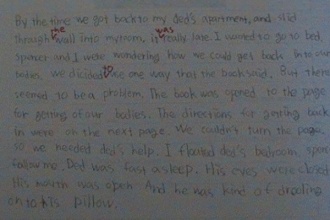 By the time we got back to my dad's apartment, and slid
through the wall into my room, it was really late. I wanted to go to bed
spencer and I were wondering how we could get back into our
bodies. we dicided use one way that the book said. But there
seemed to be a problem. The book was opened to the page
for getting of our bodies. The directions for getting back
in were on the next page. We couldn't turn the page
so we needed dad's help. I floated dad's bedroom, spen
follow me. Dad was fast asleep. His eyes were closed
His mouth was open And he was kind of drooling
on to his pillow.